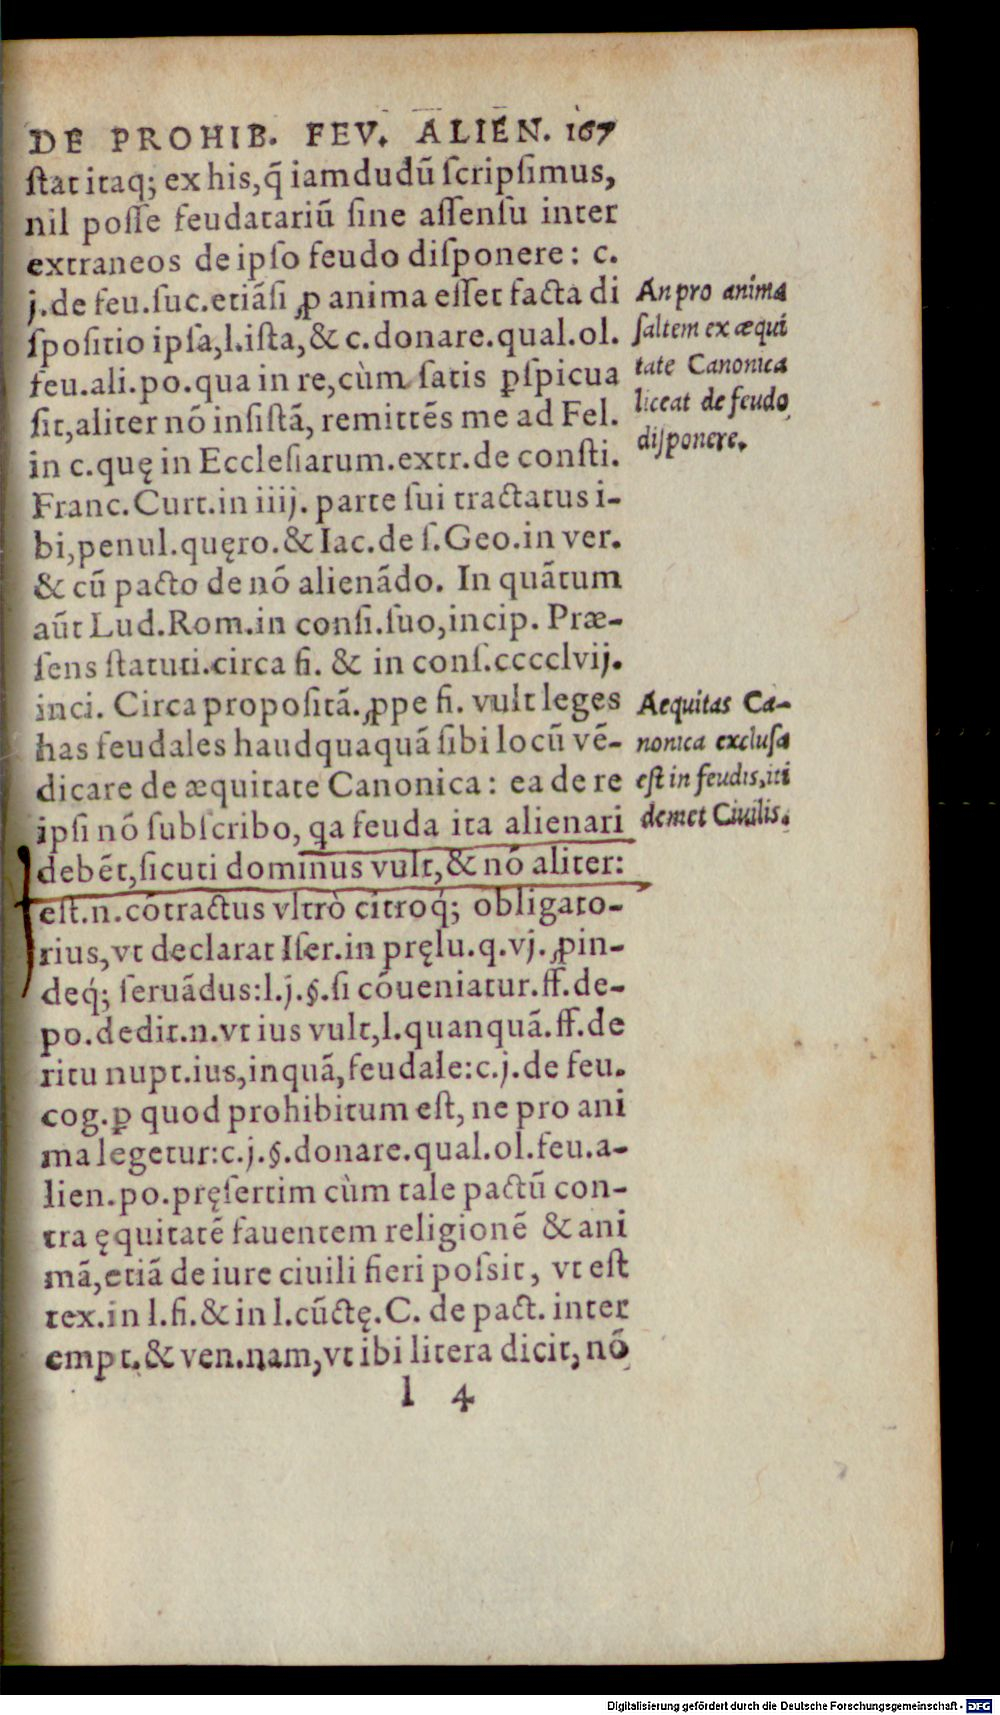 DE PROHIB. FEV. ALIEN. 167
ſtat itaq; ex his, q̃ iamdudũ ſcripſimus,
nil poſſe feudatariũ ſine aſſenſu inter
extraneos de ipſo feudo diſponere: c.
j. de feu. ſuc. etiãſi ꝓ anima eſſet facta di
ſpoſitio ipſa, l. iſta, & c. donare. qual. ol.
feu. ali. po. qua in re, cùm ſatis ꝑſpicua
ſit, aliter nõ inſiſtã, remittẽs me ad Fel.
in c. quę in Eccleſiarum. extr. de conſti.
Franc. Curt. in iiij. parte ſui tractatus i-
bi, penul. quęro. & Iac. de ſ. Geo. in ver.
& cũ pacto de nõ alienãdo. In quãtum
aũt Lud. Rom. in conſi. ſuo, incip. Præ-
ſens ſtatuti. circa fi. & in conſ. cccclvij.
inci. Circa propoſitã. ꝓpe fi. vult leges
has feudales haudquaquã ſibi locũ vẽ-
dicare de æquitate Canonica: ea de re
ipſi nõ ſubſcribo, qa feuda ita alienari
debẽt, ſicuti dominus vult, & nõ aliter:
eſt. n. cõtractus vltrò citroq́; obligato-
rius, vt declarat Iſer. in pręlu. q. vj. ꝓin-
deq́; ſeruãdus: l. j. §. ſi cõueniatur. ff. de-
po. dedit. n. vt ius vult, l. quanquã. ff. de
ritu nupt. ius, inquã, feudale: c. j. de feu.
cog. ꝑ quod prohibitum eſt, ne pro ani
ma legetur: c. j. §. donare. qual. ol. feu. a-
lien. po. pręſertim cùm tale pactũ con-
tra ęquitatẽ fauentem religionẽ & ani
mã, etiã de iure ciuili fieri poſsit, vt eſt
tex. in l. fi. & in l. cũctę. C. de pact. inter
empt. & ven. nam, vt ibi litera dicit, nõ
l 4
An pro anima
ſaltem ex æqui
tate Canonica
liceat de feudo
diſponere.
Aequitas Ca-
nonica excluſa
eſt in feudis, iti
demet Ciuilis.
Digitalisierung gefördert durch die Deutsche Forschungsgemeinschaft - DFG